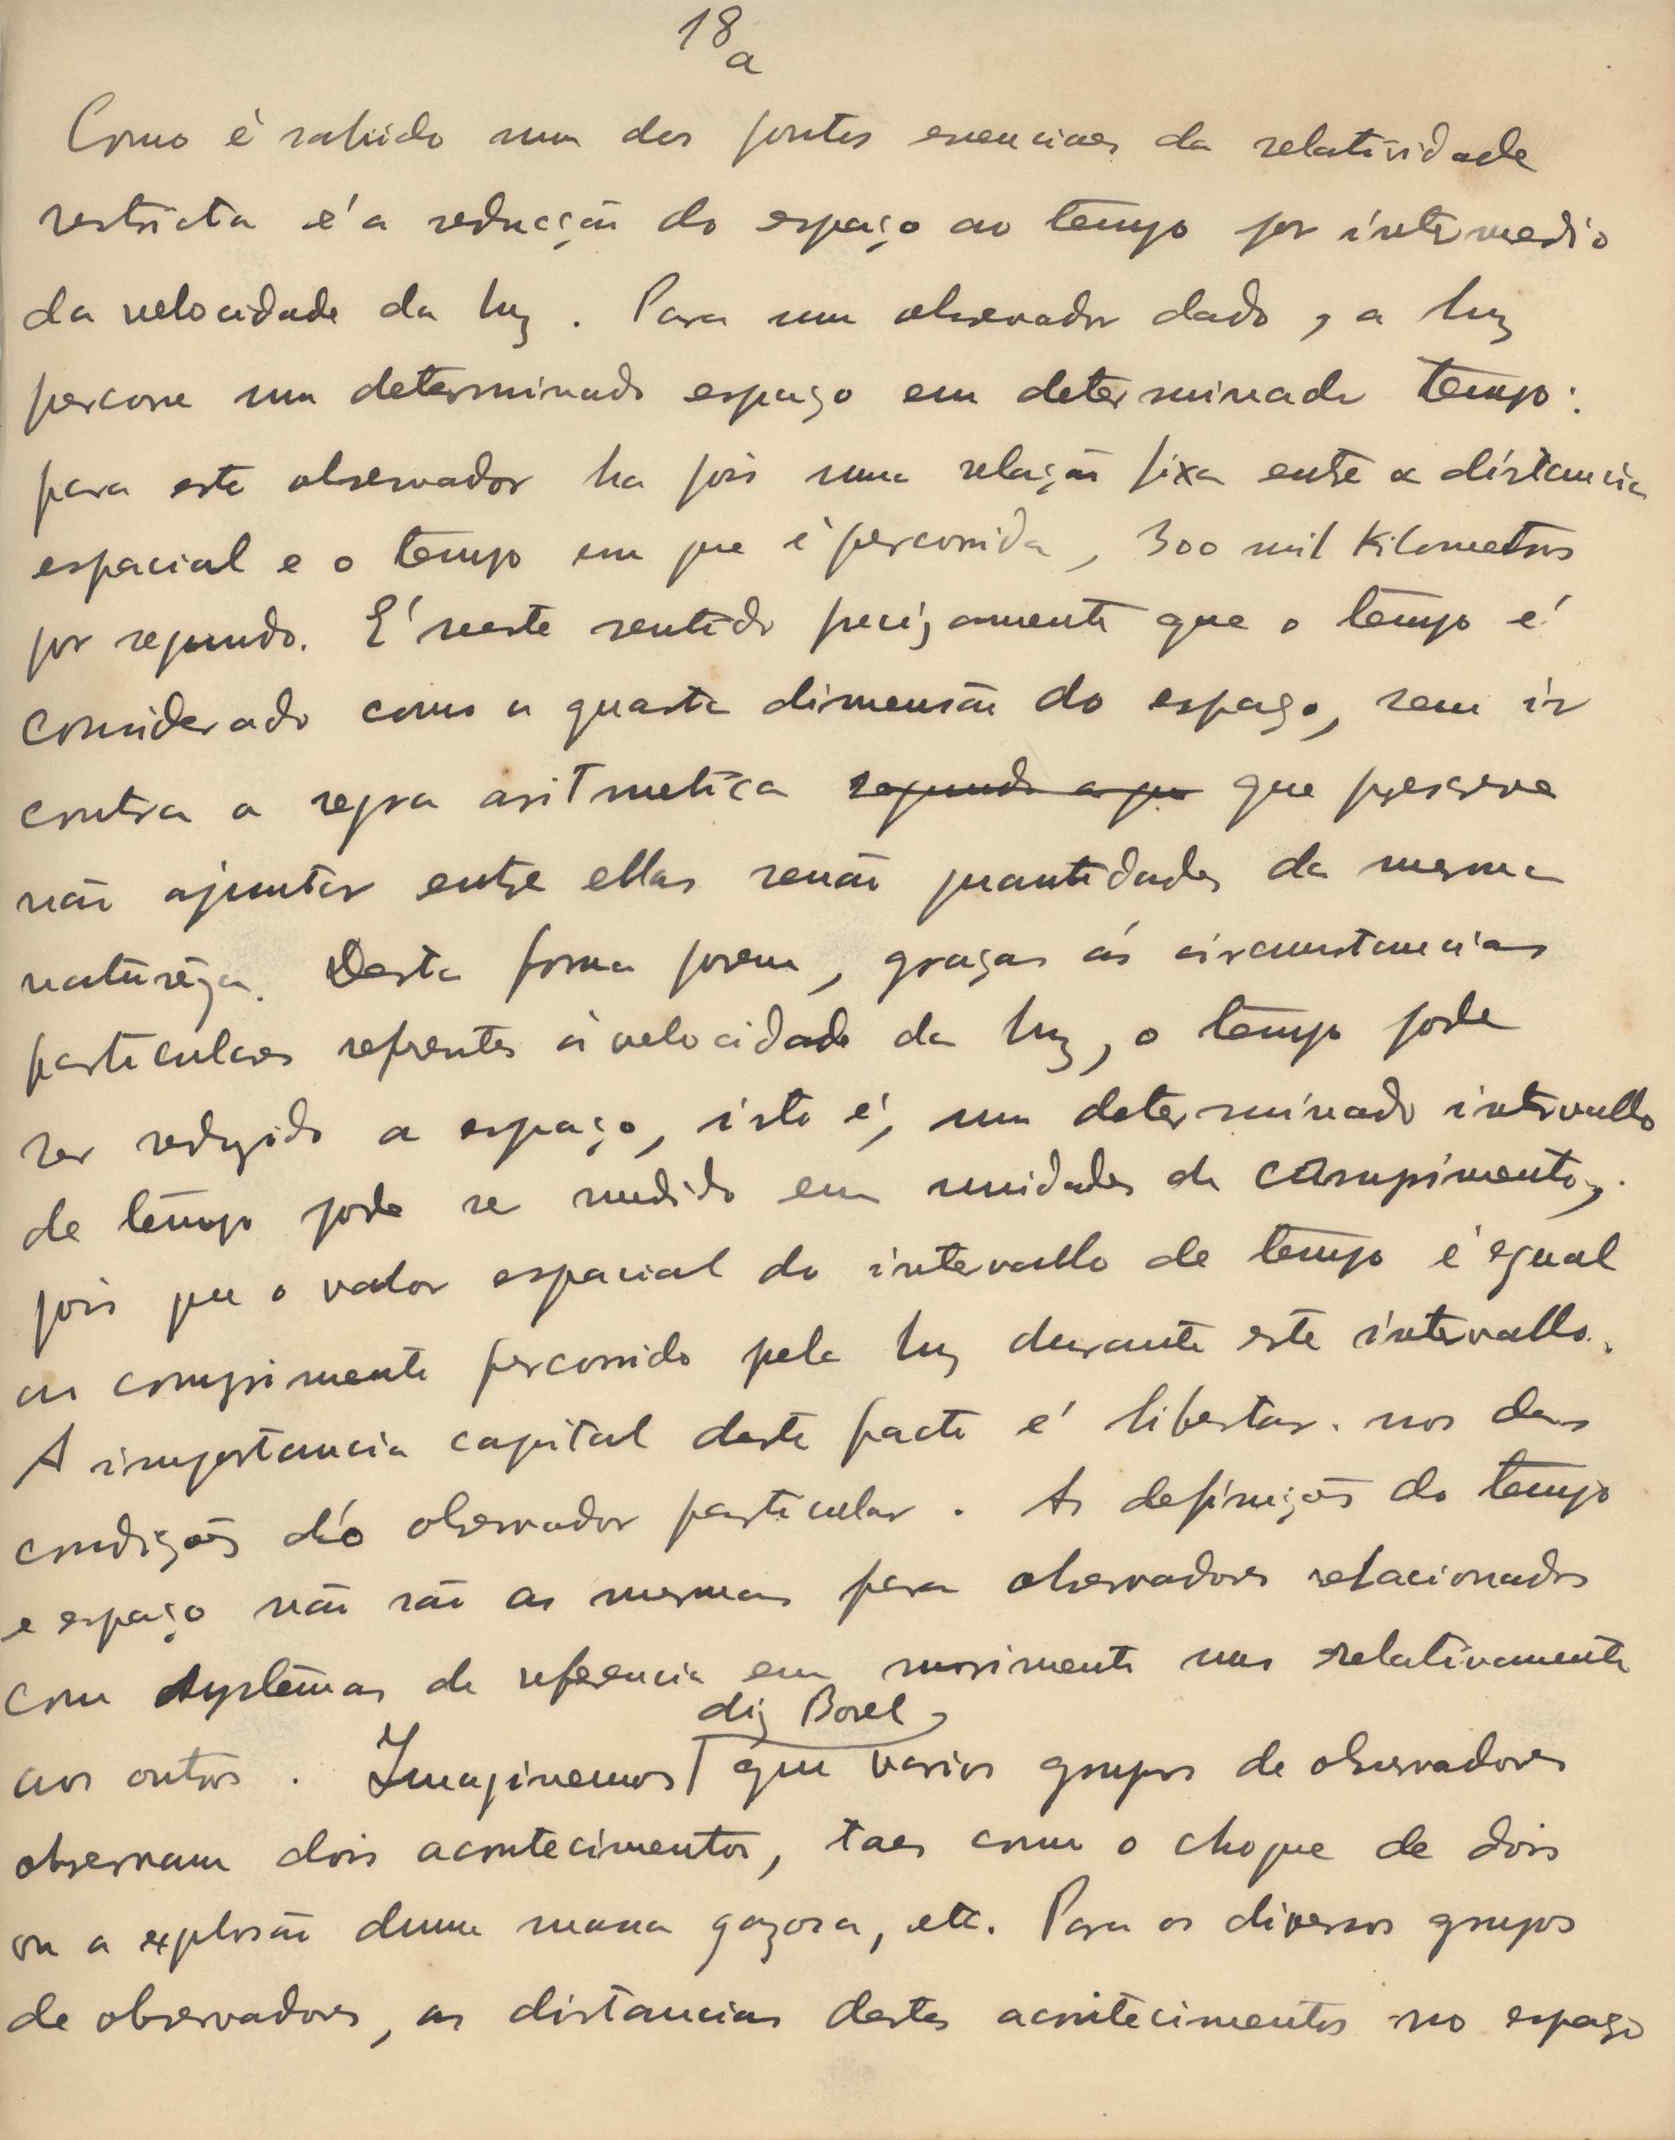 18a
Como é sabido um dos pontos esenciaes da relatividade
restricta é a reducção do espaço ao tempo por intermedio
da velocidade da luz. Para um observador dado, a luz
percorre um determinado espaço em determinado tempo:
para este observador ha pois uma relação fixa entre a distancia
espacial e o tempo em que é percorrida, 300 mil kilometros
por segundo. E' neste sentido precizamente que o tempo é
considerado como a quarta dimensão do espaço, sem ir
contra a regra aritmetica segundo a que que prescreve
não ajuntar entre ellas senão quantidades da mesma
natureza. Desta forma porem, graças ás circumstancias
particulares refrentes á velocidade da luz, o tempo pode
ser reduzido a espaço, isto é, um determinado intervallo
de tempo pode se medido em unidades de comprimento,
pois que o valor espacial do intervallo de tempo é egual
ao comprimento percorrido pela luz durante este intervallo.
A importancia capital deste facto é libertar-nos das
condições do observador particular. As definições do tempo
e espaço não são as mesmas para observadores relacionados
com systemas de referencia em movimento uns relativamente
diz Borel,
aos outros. Imaginemos que varios grupos de observadores
observam dois acontecimentos, taes como o choque de dois
ou a explosão duma massa gazosa, etc. Para os diversos grupos
de observadores, as distancias destes acontecimentos no espaço